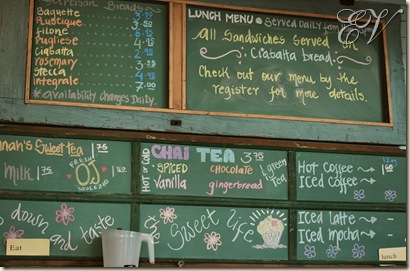 Artisan Breads
Baguette
Rustique
Filone
Pugliese
Ciabatta
rosemary
Stecca
integrale
*availability changes Daily
Lunch Menu Served Daily
All Sandwiches Served on
Ciabatta bread.
Check out our menu by the
register for more details.
EV
nnah's Sweet tea
Milk
Fresh
OJ
Squeezed
Hot or Cold
CHAI TEA
Spiced
Vanilla
chocolate
gingerbread
green
Tea
Hot Coffee
Iced coffee
down and taste
the Sweet life
Iced latte
Iced mocha
Eat
lunch